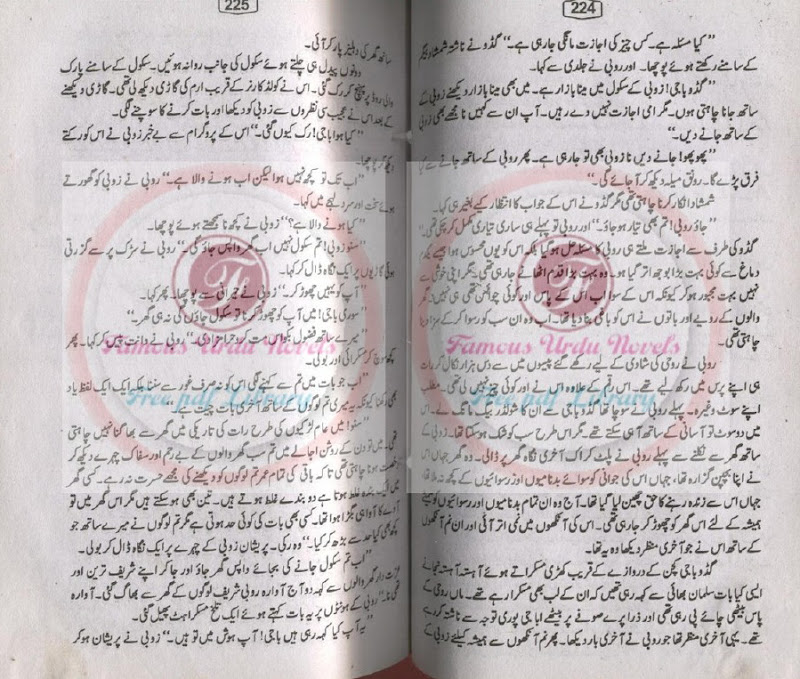 224
"کیا مسئلہ ہے۔ کس چیز کی اجازت مانگی جا رہی ہے۔" گڈو نے ناشتہ شمشاد بیگم
کے سامنے رکھتے ہوئے پوچھا۔ اور روبی نے جلدی سے کہا۔
"گڈو باجی! زوبی کے سکول میں مینا بازار ہے۔ میں بھی مینا بازار دیکھنے زوبی کے
ساتھ جانا چاہتی ہوں۔ مگر امی اجازت نہیں دے رہیں۔ آپ ان سے کہیں نا مجھے بھی زوبی
کے ساتھ جانے دیں۔"
"پھوپھو! جانے دیں نا زوبی بھی تو جا رہی ہے۔ پھر روبی کے ساتھ جانے سے کیا
فرق پڑے گا۔ رونق میلہ دیکھ کر آ جائے گی۔"
شمشاد انکار کرنا چاہتی تھی مگر گڈو نے اس کے جواب کا انتظار کیے بغیر ہی کہا۔
"جاؤ روبی! تم بھی تیار ہو جاؤ۔" اور روبی تو پہلے ہی ساری تیاری مکمل کر چکی تھی۔
گڈو کی طرف سے اجازت ملتے ہی روبی کا مسئلہ حل ہو گیا بلکہ اس کو یوں محسوس ہوا جیسے
دماغ سے کوئی بہت بڑا بوجھ اتر گیا ہو۔ وہ بہت بڑا قدم اٹھانے جا رہی تھی۔ مگر اپنی خوشی سے
نہیں بہت مجبور ہو کر کیونکہ اس کے سوا اب اس کے پاس اور کوئی چوائس تھی ہی نہیں۔ گھر
والوں کے رویے اور باتوں نے اس کو باغی بنا دیا تھا۔ اب وہ ان سب کو رسوا کر کے مزا
چاہتی تھی۔
Famous Urdu Novels
روبی نے روحی کی شادی کے لیے رکھے گئے پیسوں میں سے دس ہزار نکال کر رات
ہی اپنے پرس میں رکھ لیے تھے۔ اس رقم کے علاوہ اس نے اور کوئی چیز نہیں لی تھی۔ مطلب
Free pdf Library
اپنے سوٹ وغیرہ۔ پہلے روبی نے سوچا تھا گڈو باجی سے ان کا شولڈر بیگ مانگ لے۔ اس
میں دو سوٹ تو آسانی کے ساتھ آ ہی سکتے تھے۔ مگر اس طرح سب کو شک ہو سکتا تھا۔ زوبی کے
ساتھ گھر سے نکلنے سے پہلے روبی نے پلٹ کر اک آخری نگاہ گھر پر ڈالی۔ وہ گھر جہاں اس
نے اپنا بچپن گزارا تھا، جہاں اس کی جوانی کو سوائے بدنامیوں اور رسوائیوں کے کچھ نہ ملا تھا
جہاں اس سے زندہ رہنے کا حق چھین لیا گیا تھا۔ آج وہ ان تمام بدنامیوں اور رسوائیوں کو
ہمیشہ کے لئے اس گھر کو چھوڑ کر جا رہی تھی۔ اس کی آنکھوں میں نمی اتر آئی اور ان نم آنکھوں
کے ساتھ اس نے جو آخری منظر دیکھا وہ یہ تھا۔
گڈو باجی کچن کے دروازے کے قریب کھڑی مسکراتے ہوئے آہستہ آہستہ نجانے
ایسی کیا بات سلمان بھائی سے کہہ رہی تھیں کہ ان کے لب بھی مسکرا رہے تھے۔ ماں روحی کے
پاس بیٹھی چائے پی رہی تھی اور ذرا پرے صوفے پر بیٹھے ابا جی پوری توجہ سے ناشتہ کر رہے
تھے۔ یہی آخری منظر تھا جو روبی نے آخری بار دیکھا۔ پھر نم آنکھوں سے ہمیشہ کیلئے زوبی کے
225
ساتھ گھر کی دہلیز پار کر آئی۔
دونوں پیدل ہی چلتے ہوئے سکول کی جانب روانہ ہوئیں۔ سکول کے سامنے پارک
والی روڈ پر پہنچ کر رک گئی۔ اس نے کولڈ کارنر کے قریب ارم کی گاڑی دیکھ لی تھی۔ گاڑی دیکھنے
کے بعد اس نے عجیب سی نظروں سے زوبی کو دیکھا اور بات کرنے کا سوچنے لگی۔
"کیا ہوا باجی! رک کیوں گئی۔" اس کے پروگرام سے بے خبر زوبی نے اس کو رکتے
دیکھ کر پوچھا۔
"اب تک تو کچھ نہیں ہوا لیکن اب ہونے والا ہے۔" روبی نے زوبی کو گھورتے
ہوئے سخت اور سرد لہجے میں کہا۔
"کیا ہونے والا ہے؟" زوبی نے کچھ نا سمجھتے ہوئے پوچھا۔
"سنو زوبی! تم سکول نہیں اب گھر واپس جاؤ گی۔" روبی نے سڑک پر سے گزرتی
ہوئی گاڑیوں پر ایک نگاہ ڈال کر کہا۔
"آپ کو یہیں چھوڑ کر۔" زوبی نے حیرانی سے پوچھا۔ پھر کہا۔
"سوری باجی! میں آپ کو چھوڑ کر نا تو سکول جاؤں گی نہ ہی گھر۔"
"میرے ساتھ فضول بکواس مت کرو حرامزادی۔" روبی نے دانت پیس کر کہا۔ پھر
Famous Urdu Novels
کچھ سوچ کر مسکرائی اور بولی۔
"اب جو بات میں تم سے کہنے لگی اس کو نہ صرف غور سے سننا بلکہ ایک ایک لفظ یاد
Free pdf Library
بھی رکھنا کیونکہ یہ میری تم لوگوں کے ساتھ آخری بات چیت ہے۔"
"سنو! میں عام لڑکیوں کی طرح رات کی تاریکی میں گھر سے بھاگنا نہیں چاہتی
تھی۔ میں تو دن کے روشن اجالے میں تم سب گھر والوں کے بے رحم اور سفاک چہرے دیکھ کر
رخصت ہونا چاہتی تھی تاکہ باقی کی تمام عمر تم لوگوں کو دیکھنے کی مجھے حسرت نہ رہے۔ کسی گھر
میں ایک بندہ غلط ہوتا ہے دو بندے غلط ہوتے ہیں۔ تین بھی ہو سکتے ہیں مگر اس گھر میں تو
آوے کا آوا ہی بگڑا ہوا تھا۔ کسی بھی بات کی کوئی حد ہوتی ہے مگر تم لوگوں نے میرے ساتھ جو
کچھ بھی کیا حد سے بڑھ کر کیا۔" وہ رکی۔ پریشان زوبی کے چہرے پر ایک نگاہ ڈال کر بولی۔
"اب تم سکول جانے کی بجائے واپس گھر جاؤ اور جا کر اپنے شریف ترین اور
عزت دار گھر والوں سے کہہ دو آج آوارہ روبی شریف لوگوں کے گھر سے بھاگ گئی۔ آوارہ
تھی نا۔" روبی کے ہونٹوں پر یہ بات کہتے ہوئے ایک تلخ مسکراہٹ پھیل گئی۔
"یہ آپ کیا کہہ رہی ہیں باجی! آپ ہوش میں تو ہیں۔" زوبی نے پریشان ہو کر